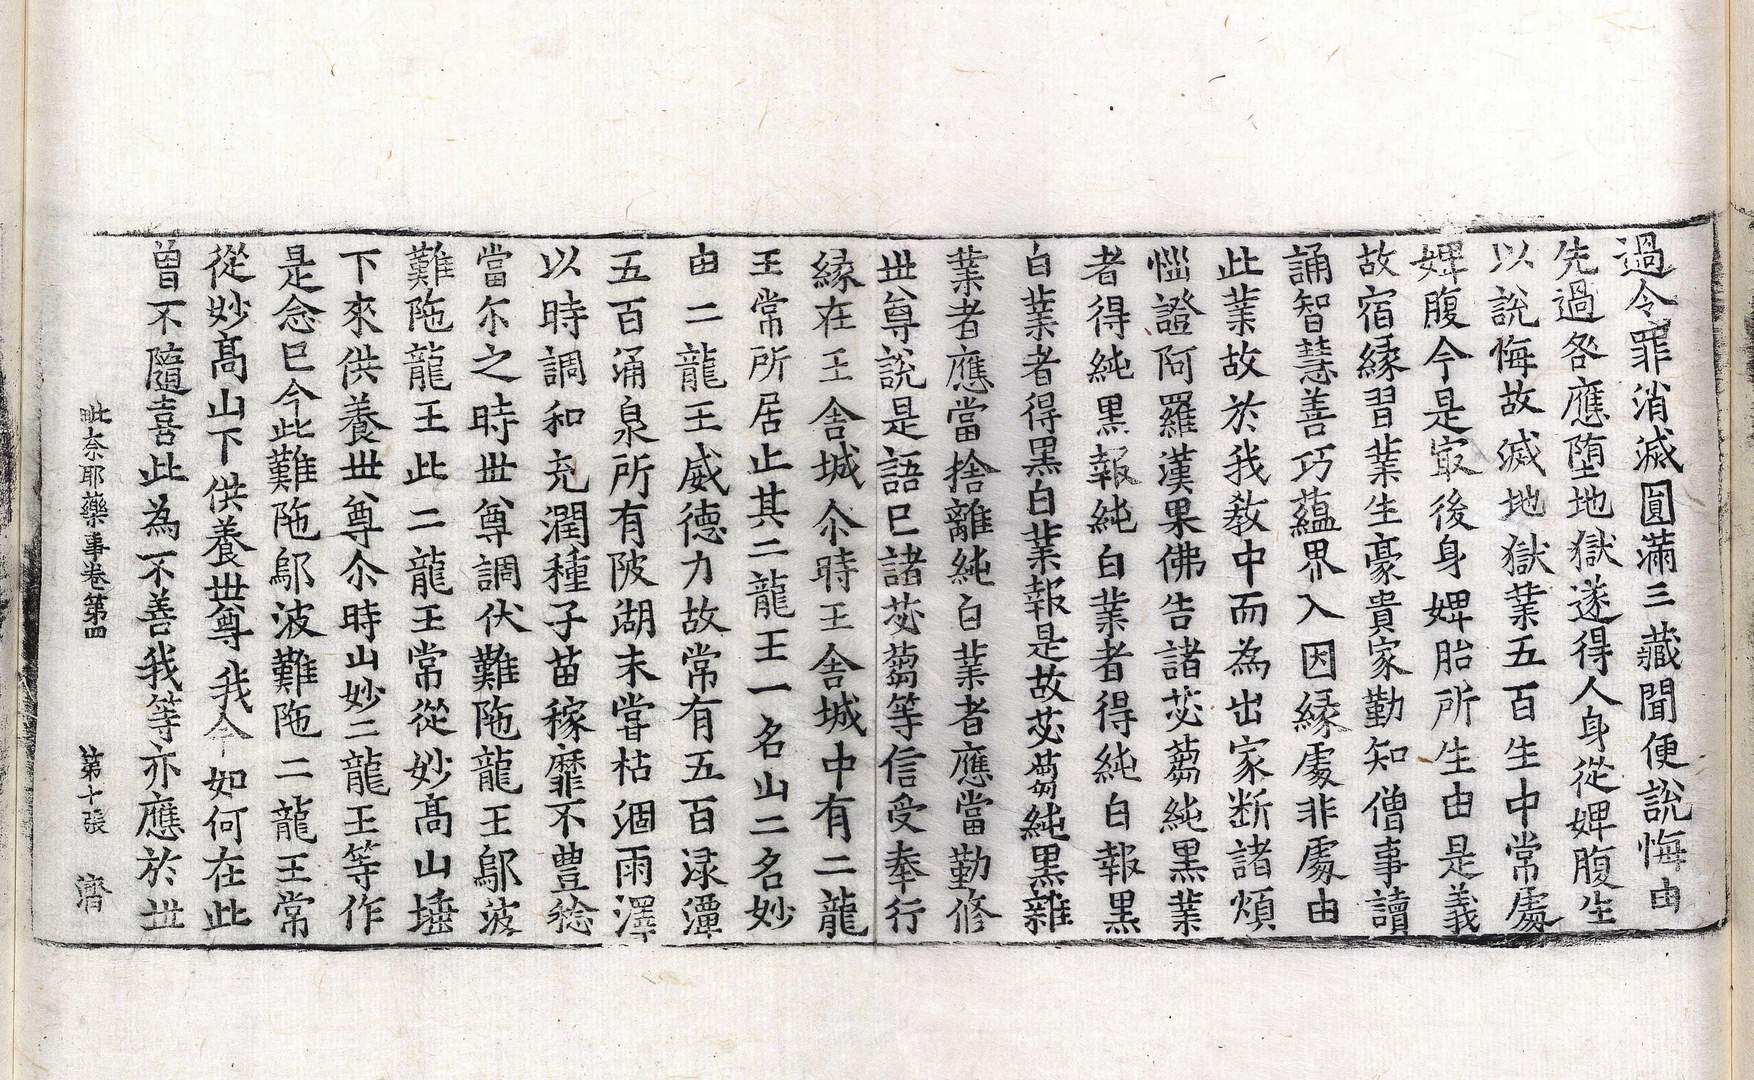 過令罪消滅圓滿三藏聞便說悔由
先過咎應墮地獄遂得人身從婢腹生
以說悔故滅地獄業五百生中常處
婢腹今是㝡後身婢胎所生由是義
故宿緣習業生豪貴家勤知僧事讀
誦智慧善巧蘊界入因緣處非處由
此業故於我教中而為出家断諸煩
惱證阿羅漢果佛告諸苾蒭純黑業
者得純黑報純白業者得純白報黑
白業者得黑白業報是故苾蒭純黑雜
業者應當捨離純白業者應當勤修
世尊說是語已諸苾蒭等信受奉行
緣在王舍城尒時王舍城中有二龍
王常所居止其二龍王一名山二名妙
由二龍王威德力故常有五百渌潭
五百涌泉所有陂湖未甞枯涸雨澤
以時調和充潤種子苗稼靡不豊稔
當尒之時世尊調伏難陁龍王鄔波
難陁龍王此二龍王常從妙高山埵
下來供養世尊尒時山妙二龍王等作
是念已今此難陁鄔波難陁二龍王常
從妙高山下供養世尊我今如何在此
曾不隨喜此為不善我等亦應於世
毗奈耶藥事卷第四 第十張 濟